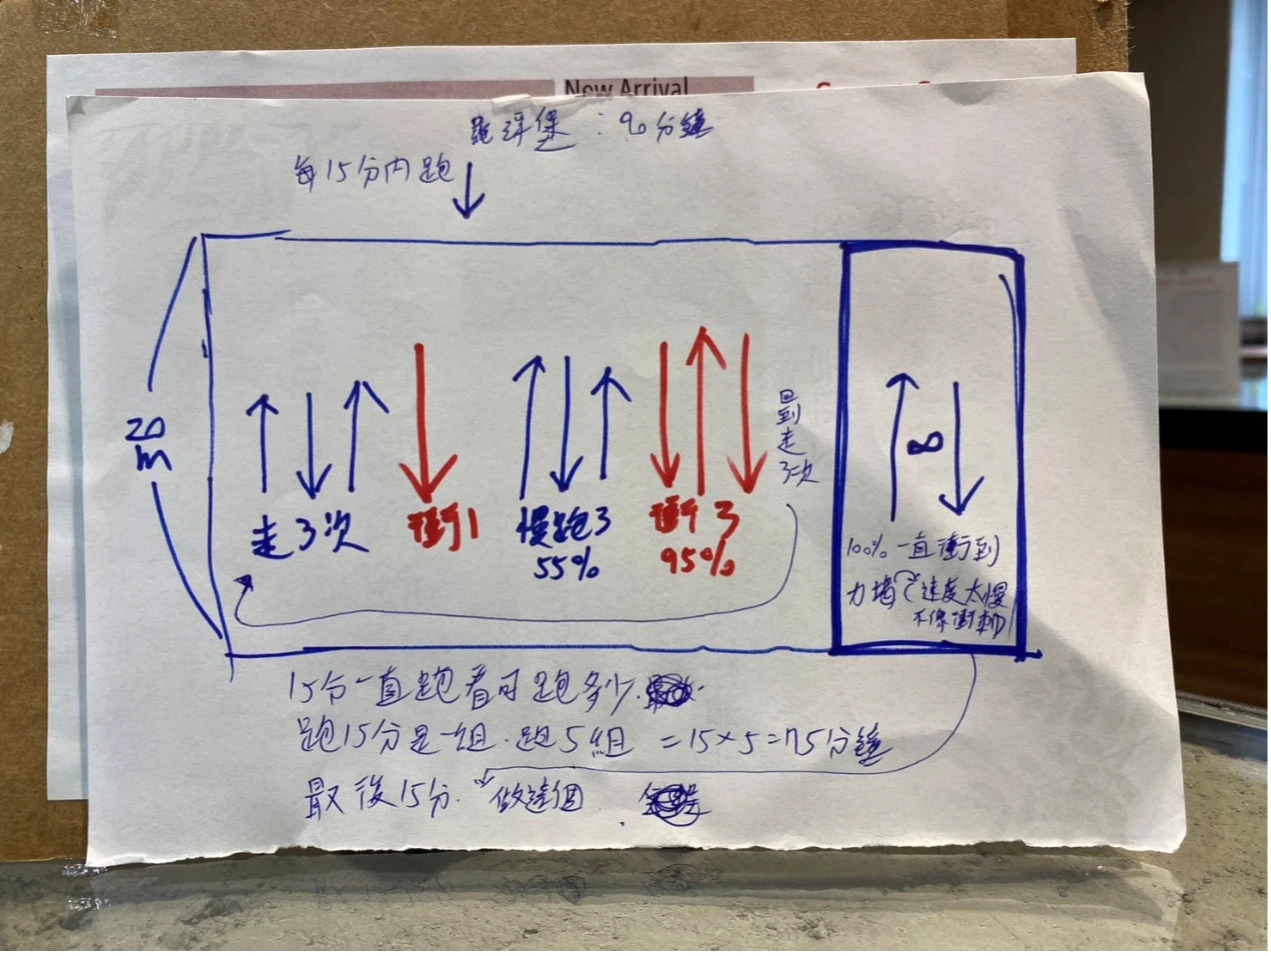 New Arrival
跑漢堡：90分鐘
每15分內跑
20m
走3次
衝1
慢跑3
55%
衝3
95%
回到走3次
∞
100% 一直衝到
力竭 速度太慢
不像衝刺
15分一直跑看可跑多少.
跑15分是一組.跑5組 =15×5=75分鐘
最後15分. 做這個